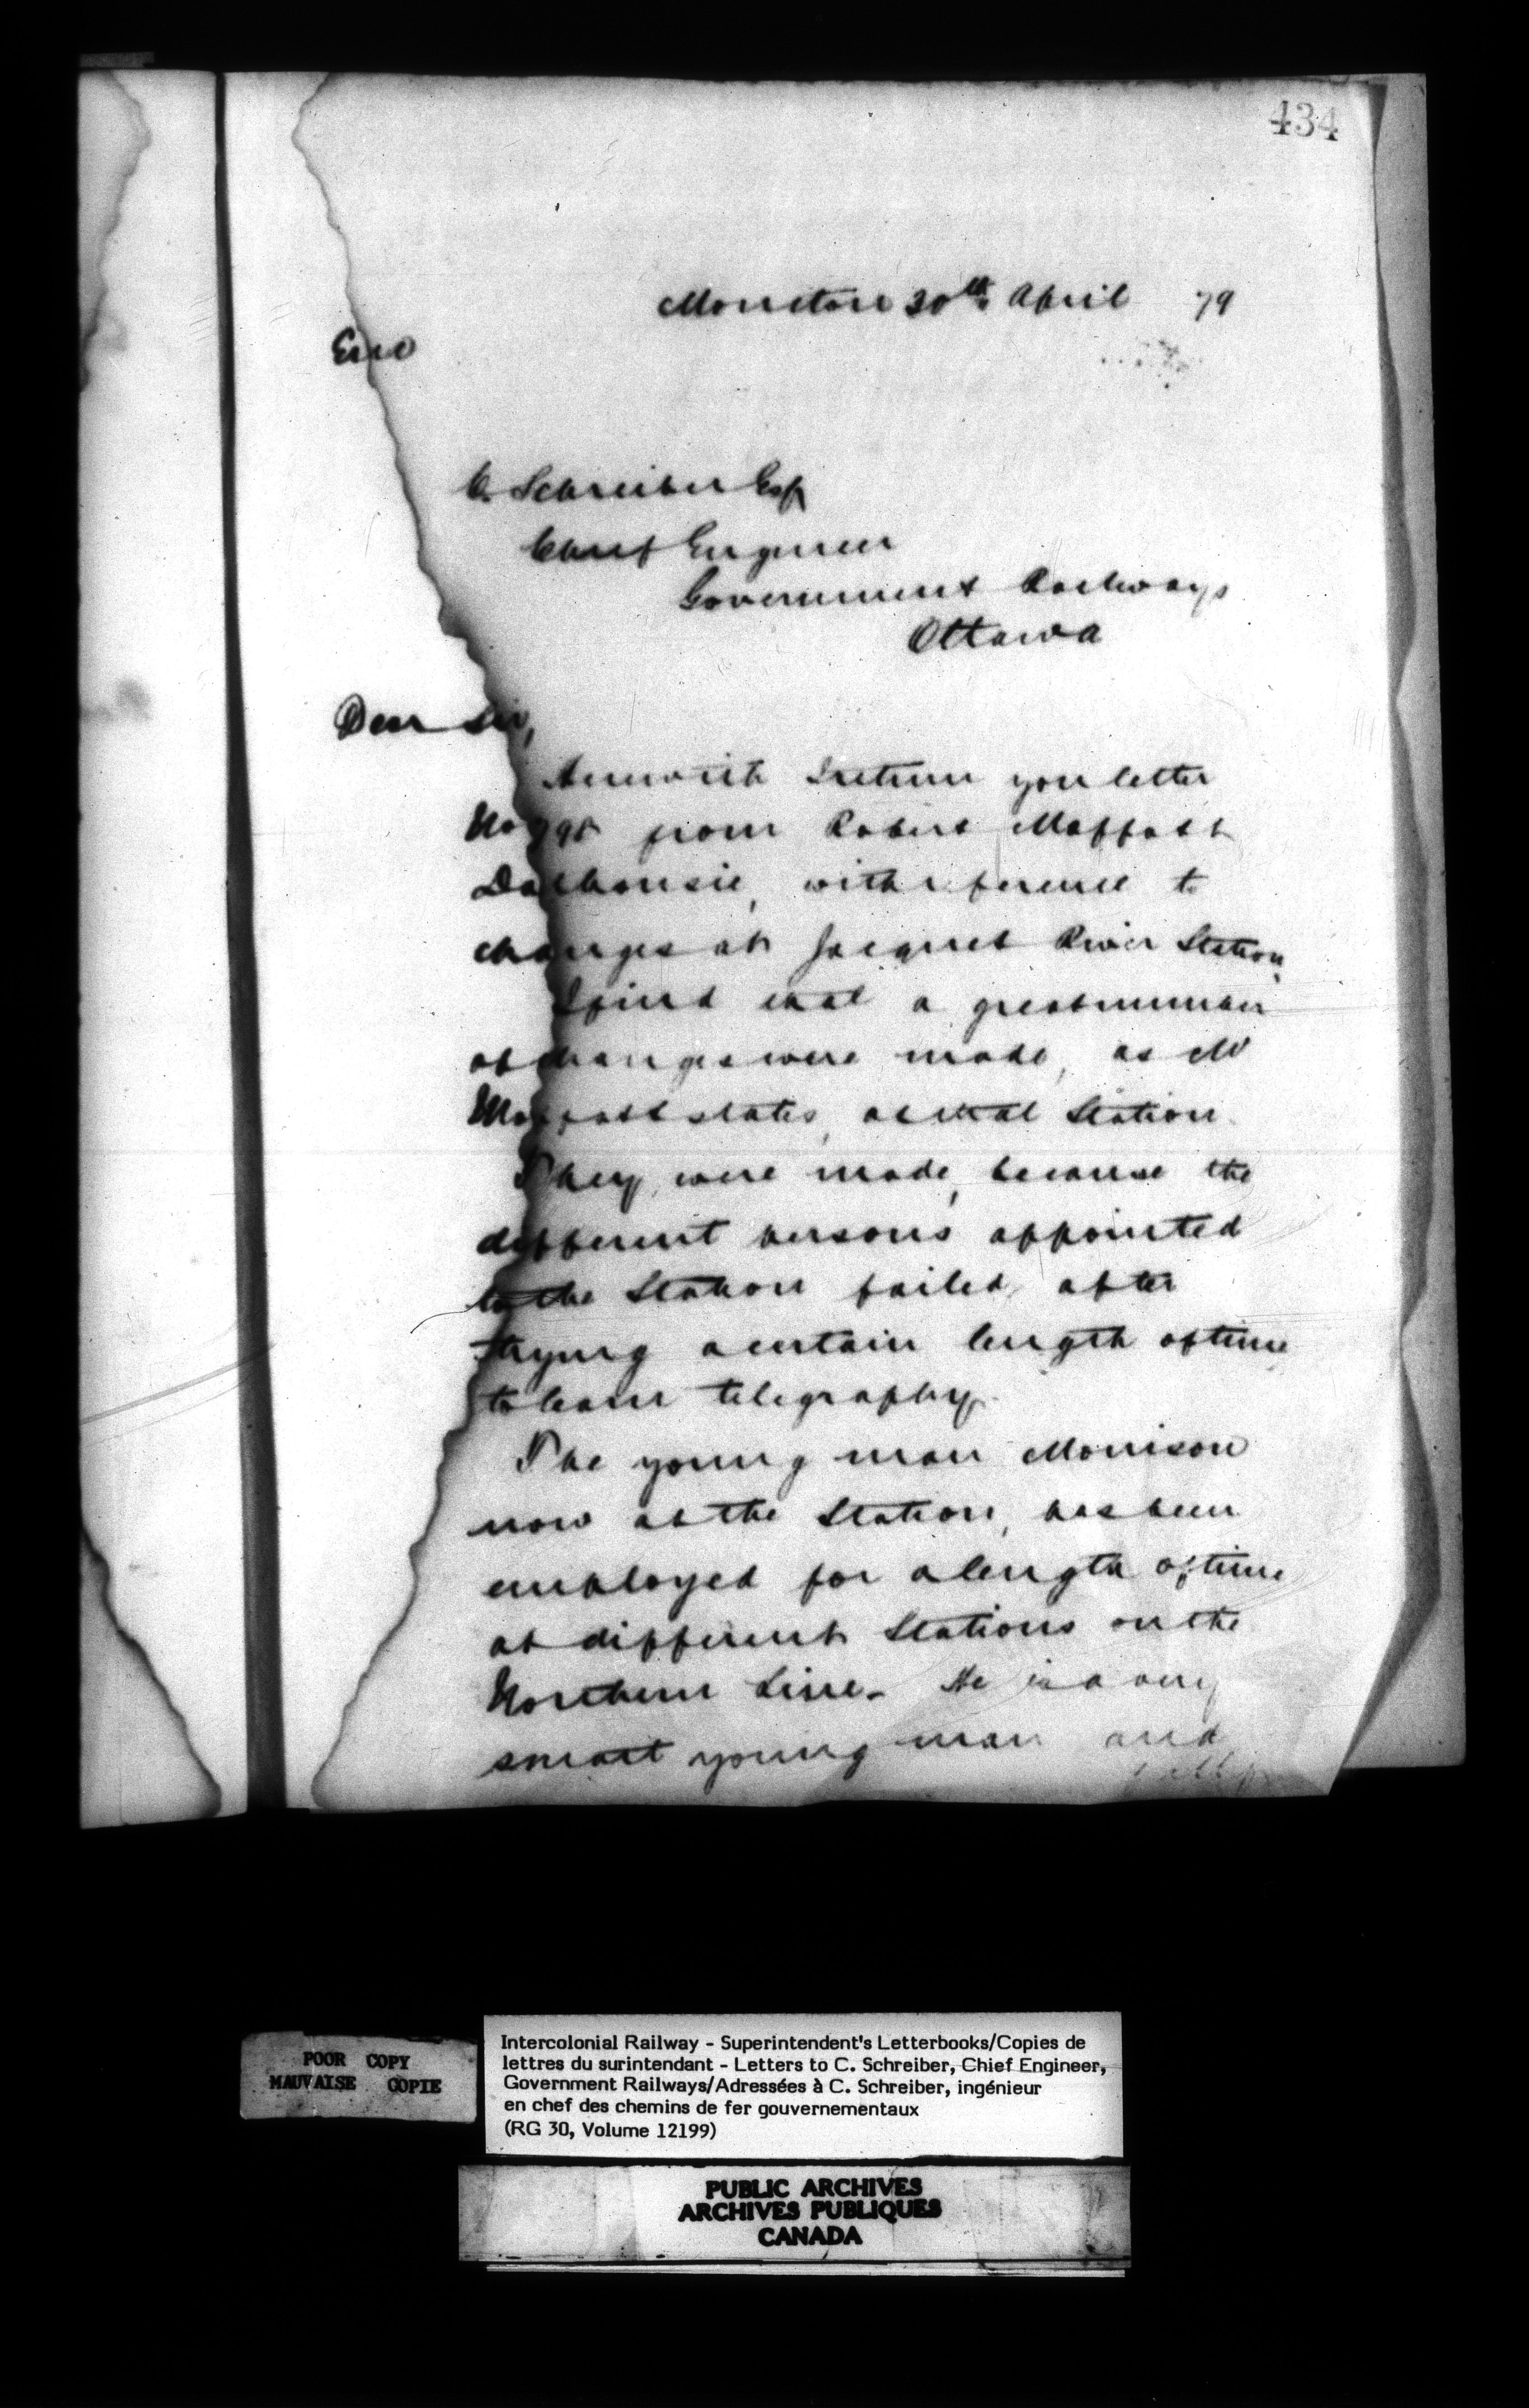 434
Moncton 30th April 79
C. Schreiber Esq
Chief Engineer
Government Railways
Ottawa
Dear Sir,
Herewith I return you letter
No from Robert Moffatt
Dalhousie, with reference to
changes at Jacquet River Station.
I find that a great number
of changes were made, as Mr
Moffatt states, at that Station.
They were made, because the
different persons appointed
to the Station failed, after
trying a certain length of time
to learn telegraphy.
The young man Morrison
now at the Station, has been
employed for a length of time
at different Stations on the
Northern Line. He is a very
smart young man and
POOR COPY
MAUVAISE COPIE
Intercolonial Railway - Superintendent's Letterbooks/Copies de
lettres du surintendant - Letters to C. Schreiber, Chief Engineer,
Government Railways/Adressées à C. Schreiber, ingénieur
en chef des chemins de fer gouvernementaux
(RG 30, Volume 12199)
PUBLIC ARCHIVES
ARCHIVES PUBLIQUES
CANADA